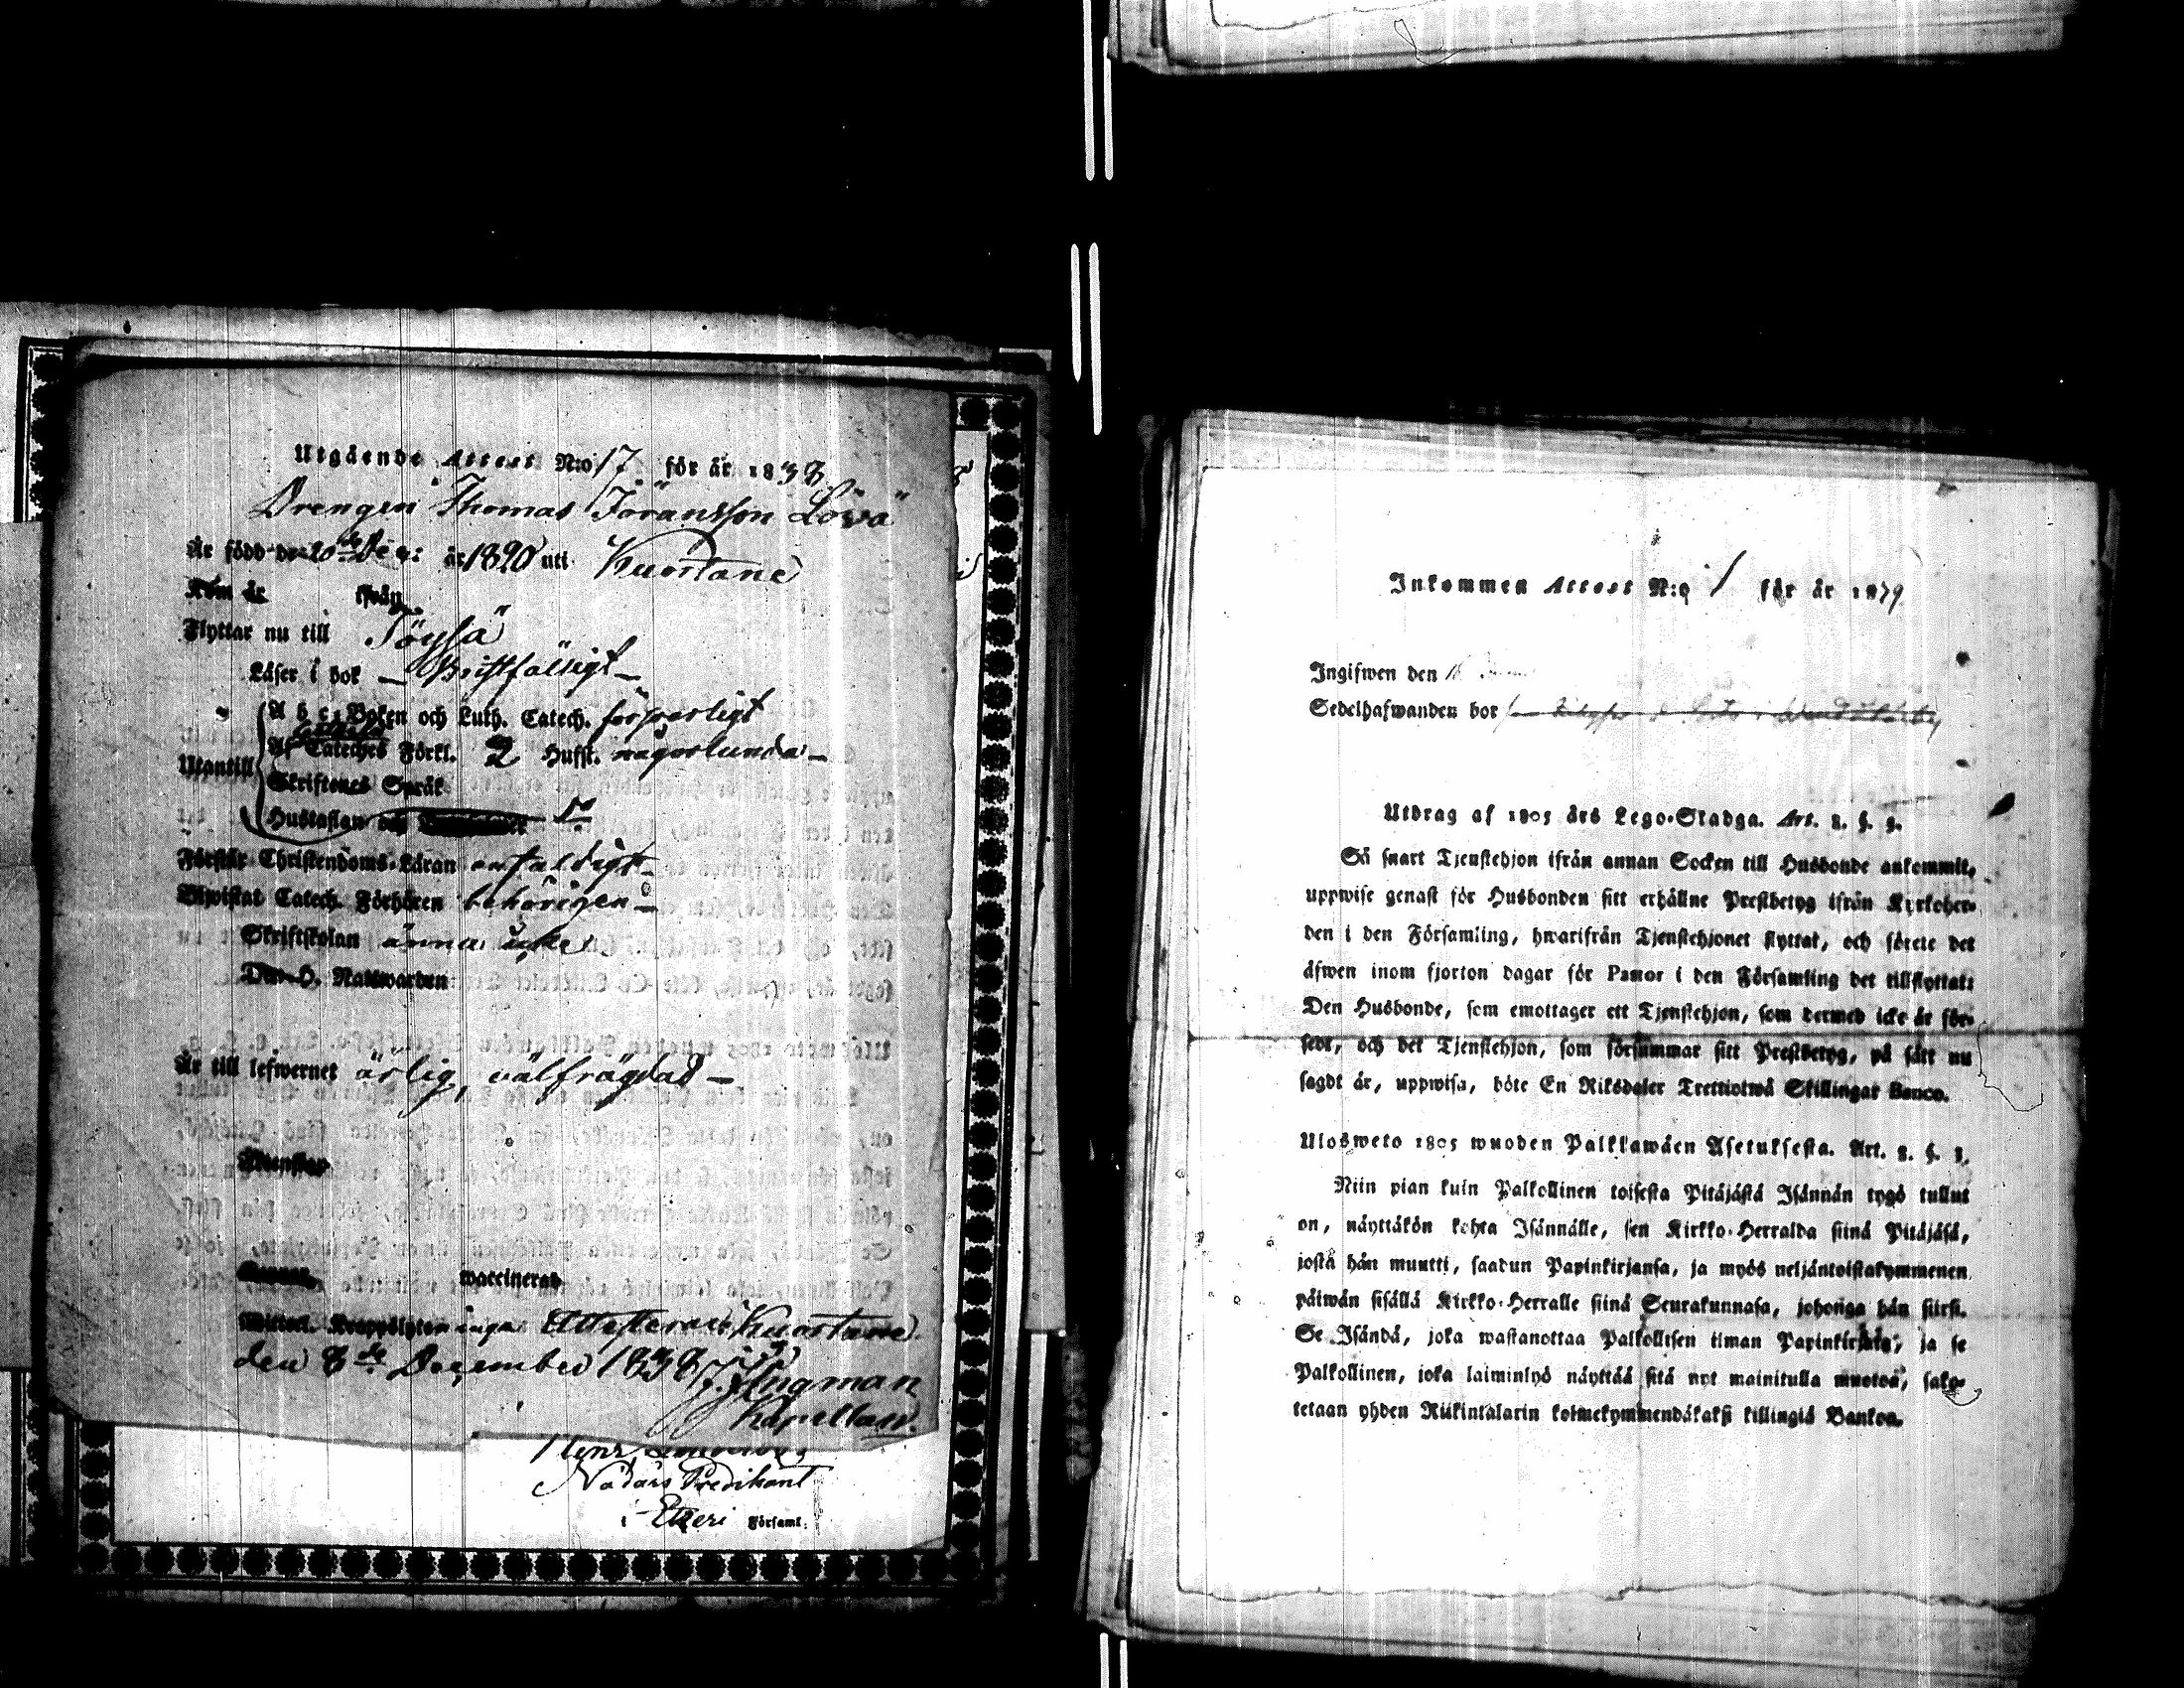 Utgående Attest N:o 17 för år 1838
Drengen Thomas Jöransson Löva
Är född den 20de Dec: år 1820 uti Kuortane
Kom år ifrån
Flyttar nu till Töysä
Läser i bok — Bristfälligt —
Utantill
A b c-Boken och Luth. Catech. försvarligt
Af Cateches Förkl. 2 Hufst. någorlunda —
Skriftenes Språk
Hustaflan och
Förstår Christendoms-Läran enfaldigt —
Biwistat Catech. Förhören behörigen —
Skriftskolan ännu icke
Den H. Nattwarden
Är till lefwernet ärlig, välfrägdad —
waccinerad
inga Attesterar Kuortane
den 8de December 1838 J. Ingman
Kapellan.
Nådårs Predikant
i Etseri Församl.
Inkommen Attest N:o 1 för år 1879
Ingifwen den 16
Sedelhafwanden bor
Utdrag af 1805 års Lego-Stadga. Art. 2. §. 3.
Så snart Tjenstehjon ifrån annan Socken till Husbonde ankommit,
uppwise genast för Husbonden sitt erhållne Prestbetyg ifrån Kyrkoher-
den i den Församling, hwarifrån Tjenstehjonet flyttat, och förete det
äfwen inom fjorton dagar för Pastor i den Församling det tillflyttat:
Den Husbonde, som emottager ett Tjenstehjon, som dermed icke är för-
sedt, och det Tjenstehjon, som försummar sitt Prestbetyg, på sätt nu
sagdt är, uppwisa, böte En Riksdaler Trettiotwå Skillingar Banco.
Ulosweto 1805 wuoden Palkkawäen Asetuksesta. Art. 2. §. 3.
Niin pian kuin Palkollinen toisesta Pitäjästä Isännän tygö tullut
on, näyttäkön kohta Isännälle, sen Kirkko-Herralda siinä Pitäjäsä,
jostä hän muutti, saadun Papinkirjansa, ja myös neljäntoistakymmenen
päiwän sisällä Kirkko-Herralle siinä Seurakunnasa, johonga hän siirsi.
Se Isändä, joka wastanottaa Palkollisen ilman Papinkirjata, ja se
Palkollinen, joka laiminlyö näyttää sitä nyt mainitulla muotoa, sako-
tetaan yhden Riikintalarin kolmekymmendäkaksi killingiä Bankoa.